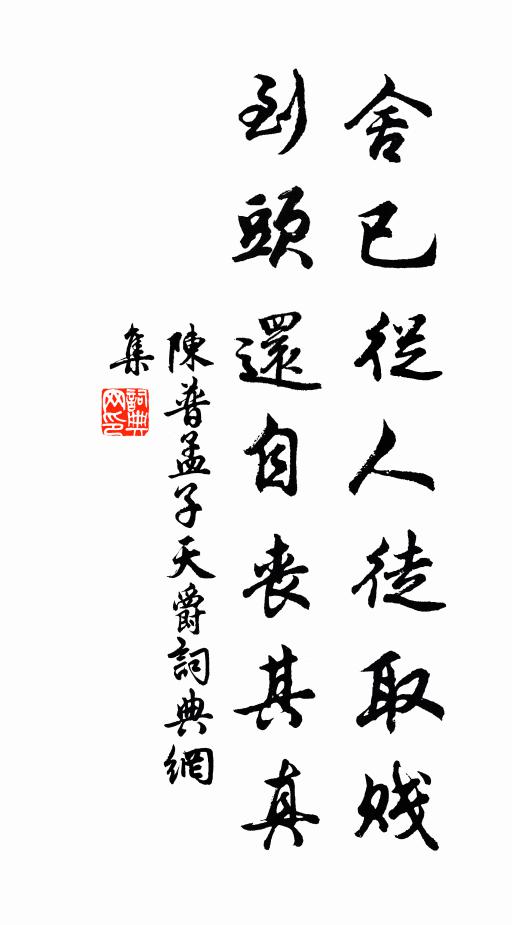 舍已從人徒取賤
到頭還自丧其真
陳普孟子天爵詞典網
集
詞典
网印